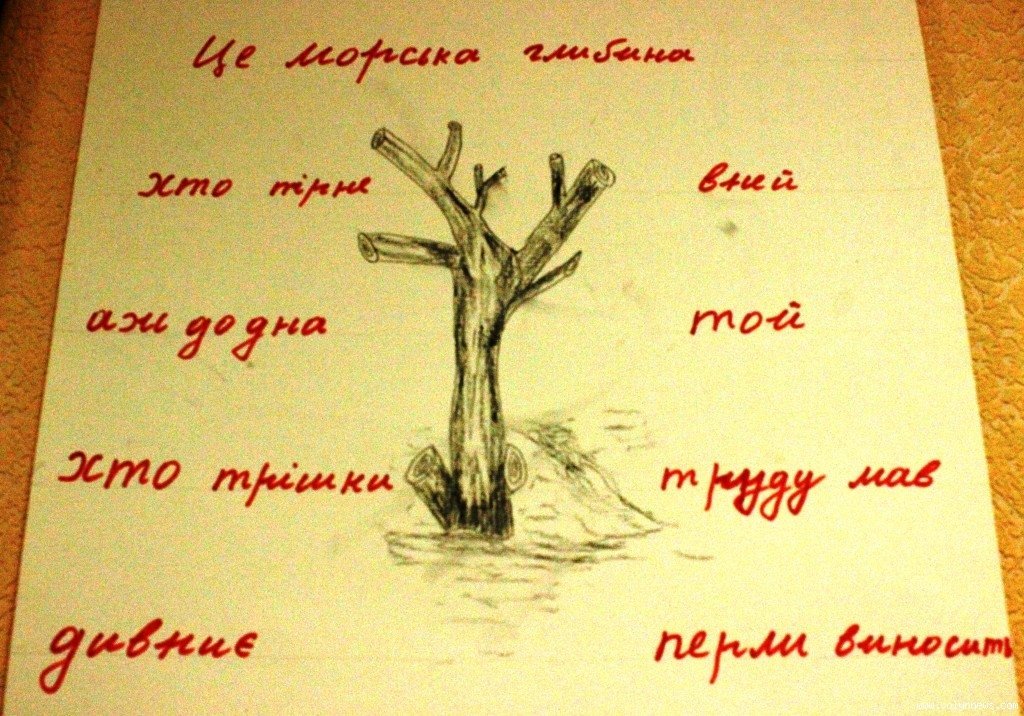 Це морська глибина
хто пірне вней
аж до дна той
хто трішки труду мав
дивниє перли виносить